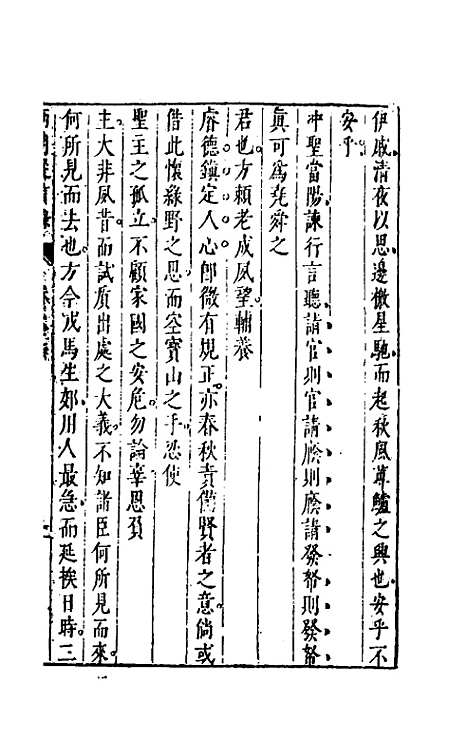 伊戚清夜以思邊檄星馳而起秋風蓴鱸之興也安乎不
安乎
冲聖當陽諫行言聽請官則官請廢則廢請發帑則發帑
眞可為堯舜之
君也方賴老成夙望輔養
睿德鎮定人心即微有規正亦春秋責備賢者之意倘或
借此懷綠野之思而空寶山之手恐使
聖王之孤立不顧家國之安危勿論辜恩負
主大非夙昔而試質出處之大義不知諸臣何所見而來
何所見而去也方今戎馬生郊用人最急而延挨日時三